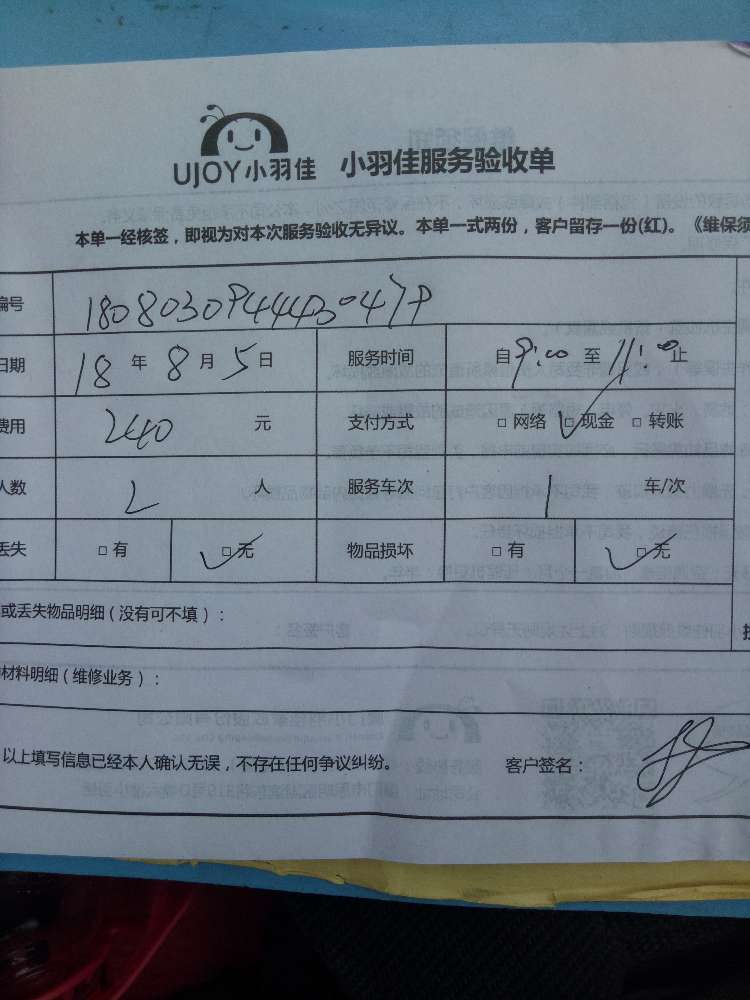 UJOY小羽佳 小羽佳服务验收单
本单一经核签，即视为对本次服务验收无异议。本单一式两份，客户留存一份(红)。《维保须
编号 180803094443047P
日期 18 年 8 月 5 日 服务时间 自 9:00 至 11:00 止
费用 240 元 支付方式 □ 网络 □ 现金 □ 转账
人数 2 人 服务车次 1 车/次
丢失 □ 有 □ 无 物品损坏 □ 有 □ 无
或丢失物品明细（没有可不填）：
材料明细（维修业务）：
以上填写信息已经本人确认无误，不存在任何争议纠纷。 客户签名：